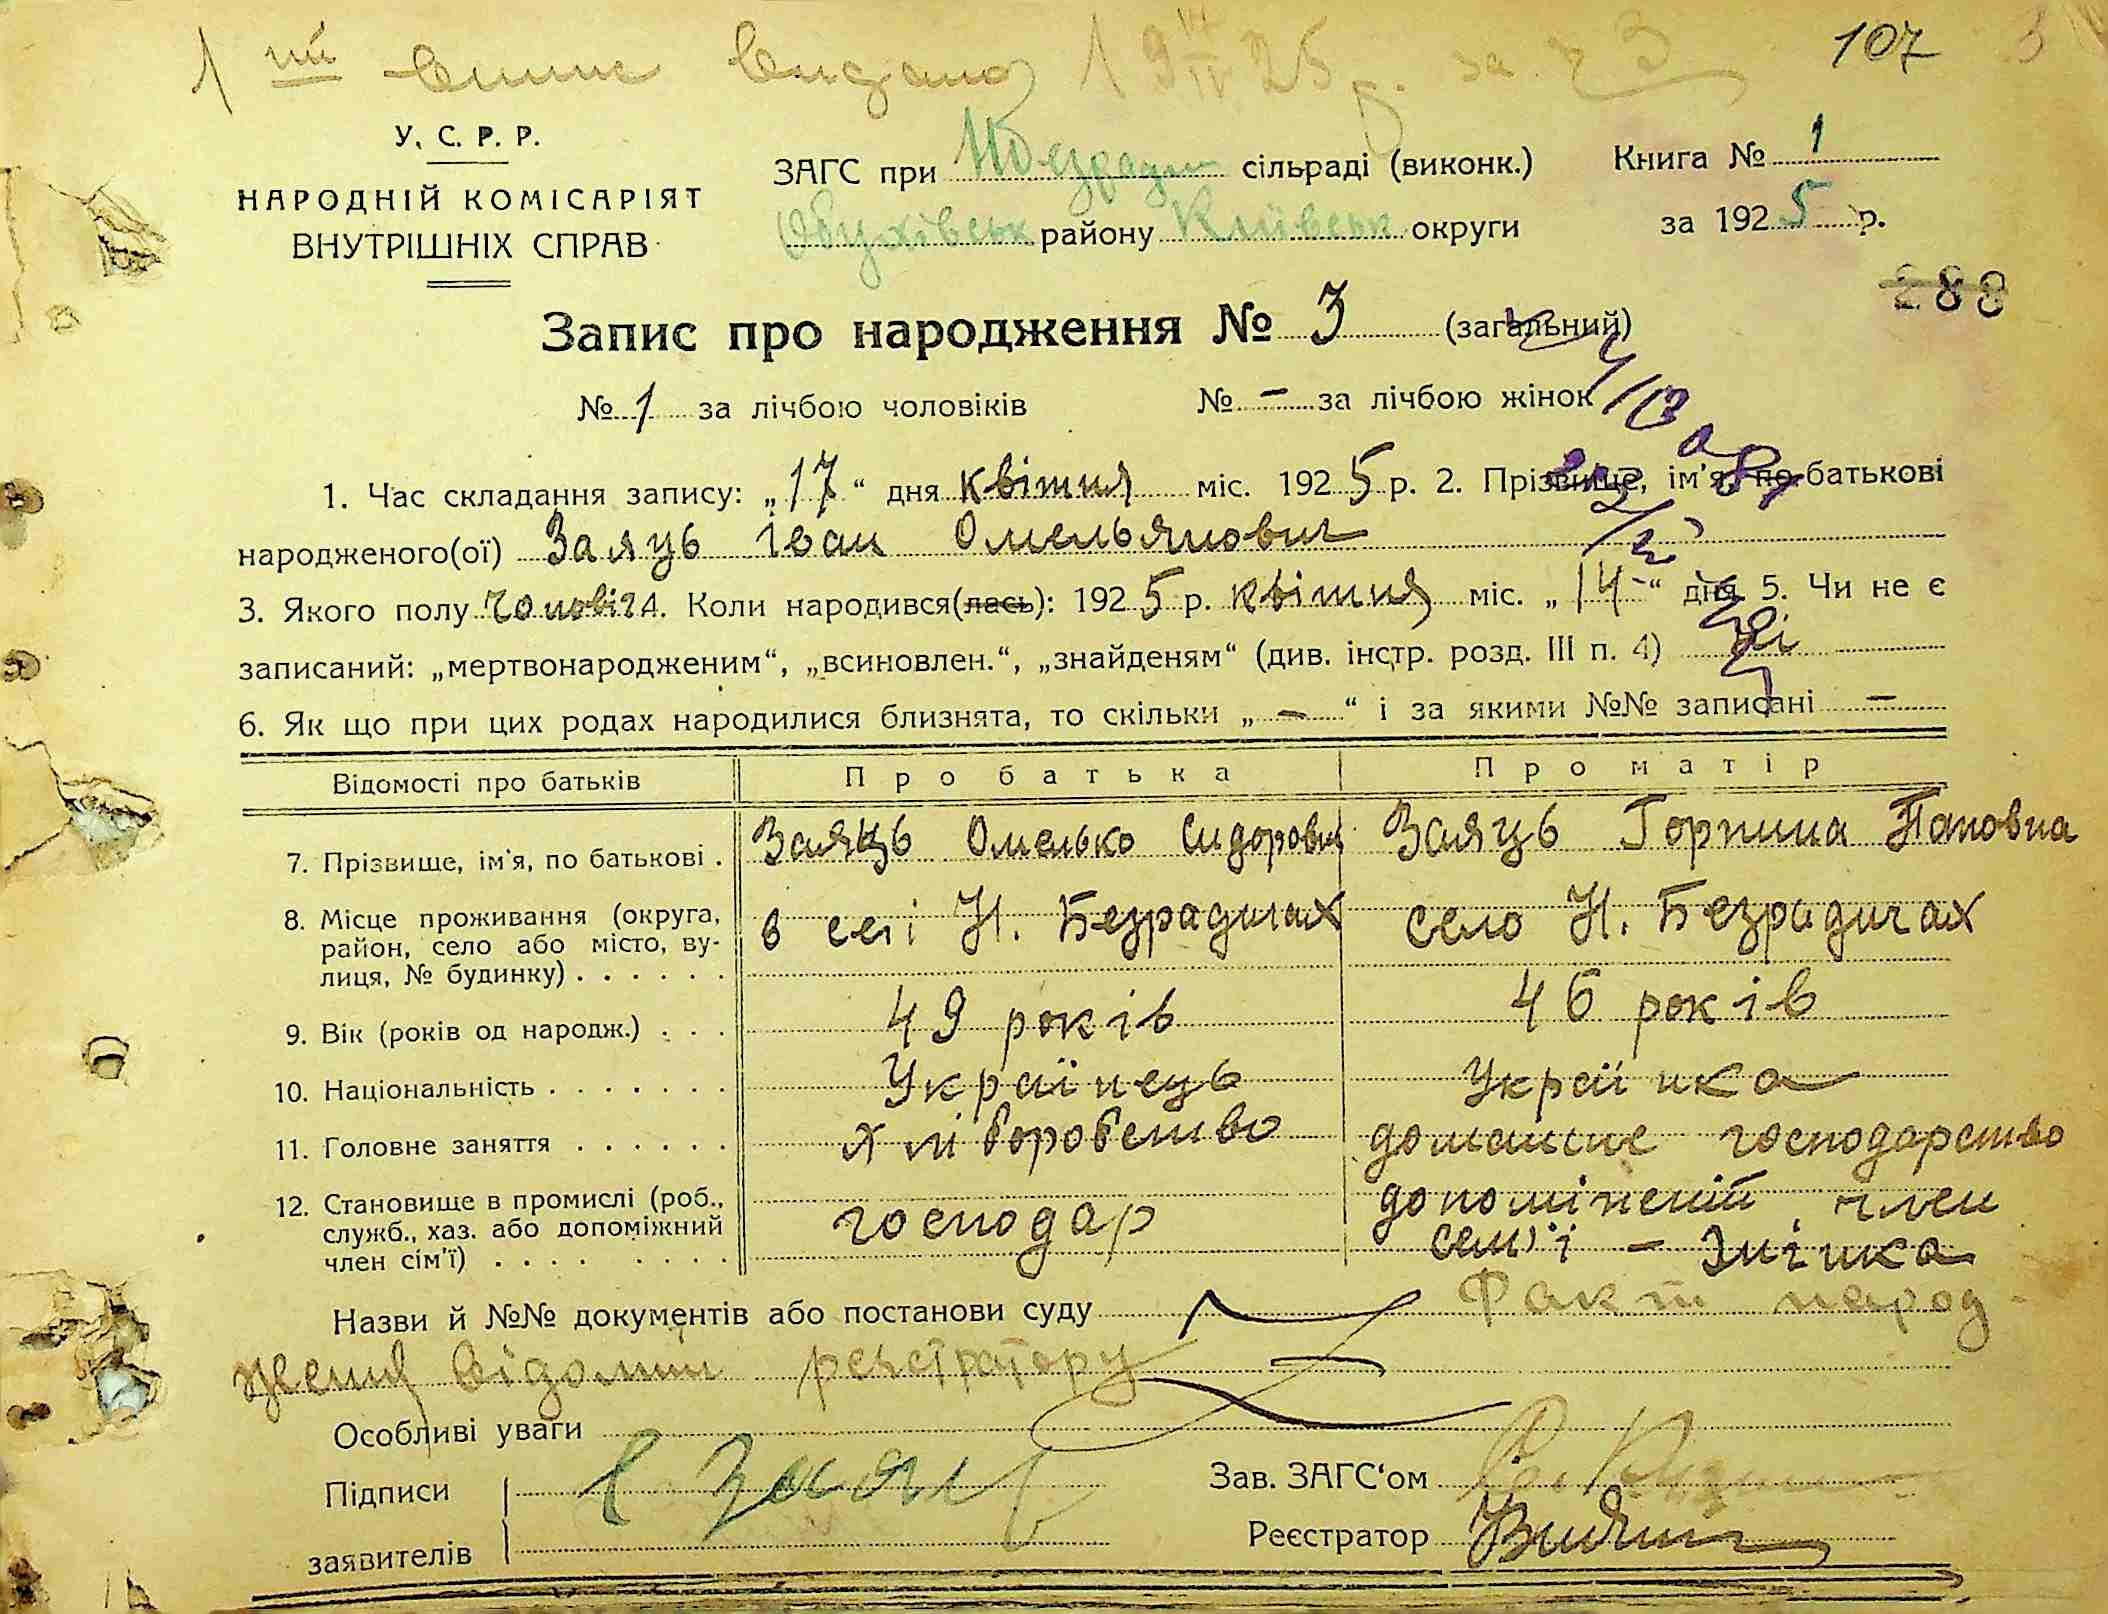 1 ий випис видано 19 IV 25 р. за ч 3
107
У. С. Р. Р.
НАРОДНІЙ КОМІСАРІЯТ
ВНУТРІШНІХ СПРАВ
ЗАГС при сільраді (виконк.)
Обухівськ району Київськ округи
Книга № 1
за 1925 р.
288
Запис про народження № 3 (загальний)
№ 1 за лічбою чоловіків № – за лічбою жінок
1. Час складання запису: „17“ дня квітня міс. 1925 р. 2. Прізвище, ім'я, по-батькові
народженого(ої) Заяць Іван Омельянович
3. Якого полу чоловіч 4. Коли народився(лась): 1925 р. квітня міс. „14“ дня 5. Чи не є
записаний: „мертвонародженим“, „всиновлен.“, „знайденям“ (див. інстр. розд. III п. 4) ні
6. Як що при цих родах народилися близнята, то скільки „–“ і за якими №№ записані –
Відомості про батьків Про батька Про матір
7. Прізвище, ім'я, по батькові . Заяць Омелько Сидорович Заяць Горпина
8. Місце проживання (округа,
район, село або місто, ву-
лиця, № будинку) . . . . . .
в селі Н. Безрадичах село Н. Безрадичах
9. Вік (років од народж.) . . . 49 років 46 років
10. Національність . . . . . . . Українець Українка
11. Головне заняття . . . . . . хліборобство домашнє господарство
12. Становище в промислі (роб.,
служб., хаз. або допоміжний
член сім'ї) . . . . . . . .
господар
член
сем'ї –
Назви й №№ документів або постанови суду Факт народ-
ження відомий реєстратору
Особливі уваги
Підписи
заявителів
Заяц
Зав. ЗАГС'ом
Реєстратор